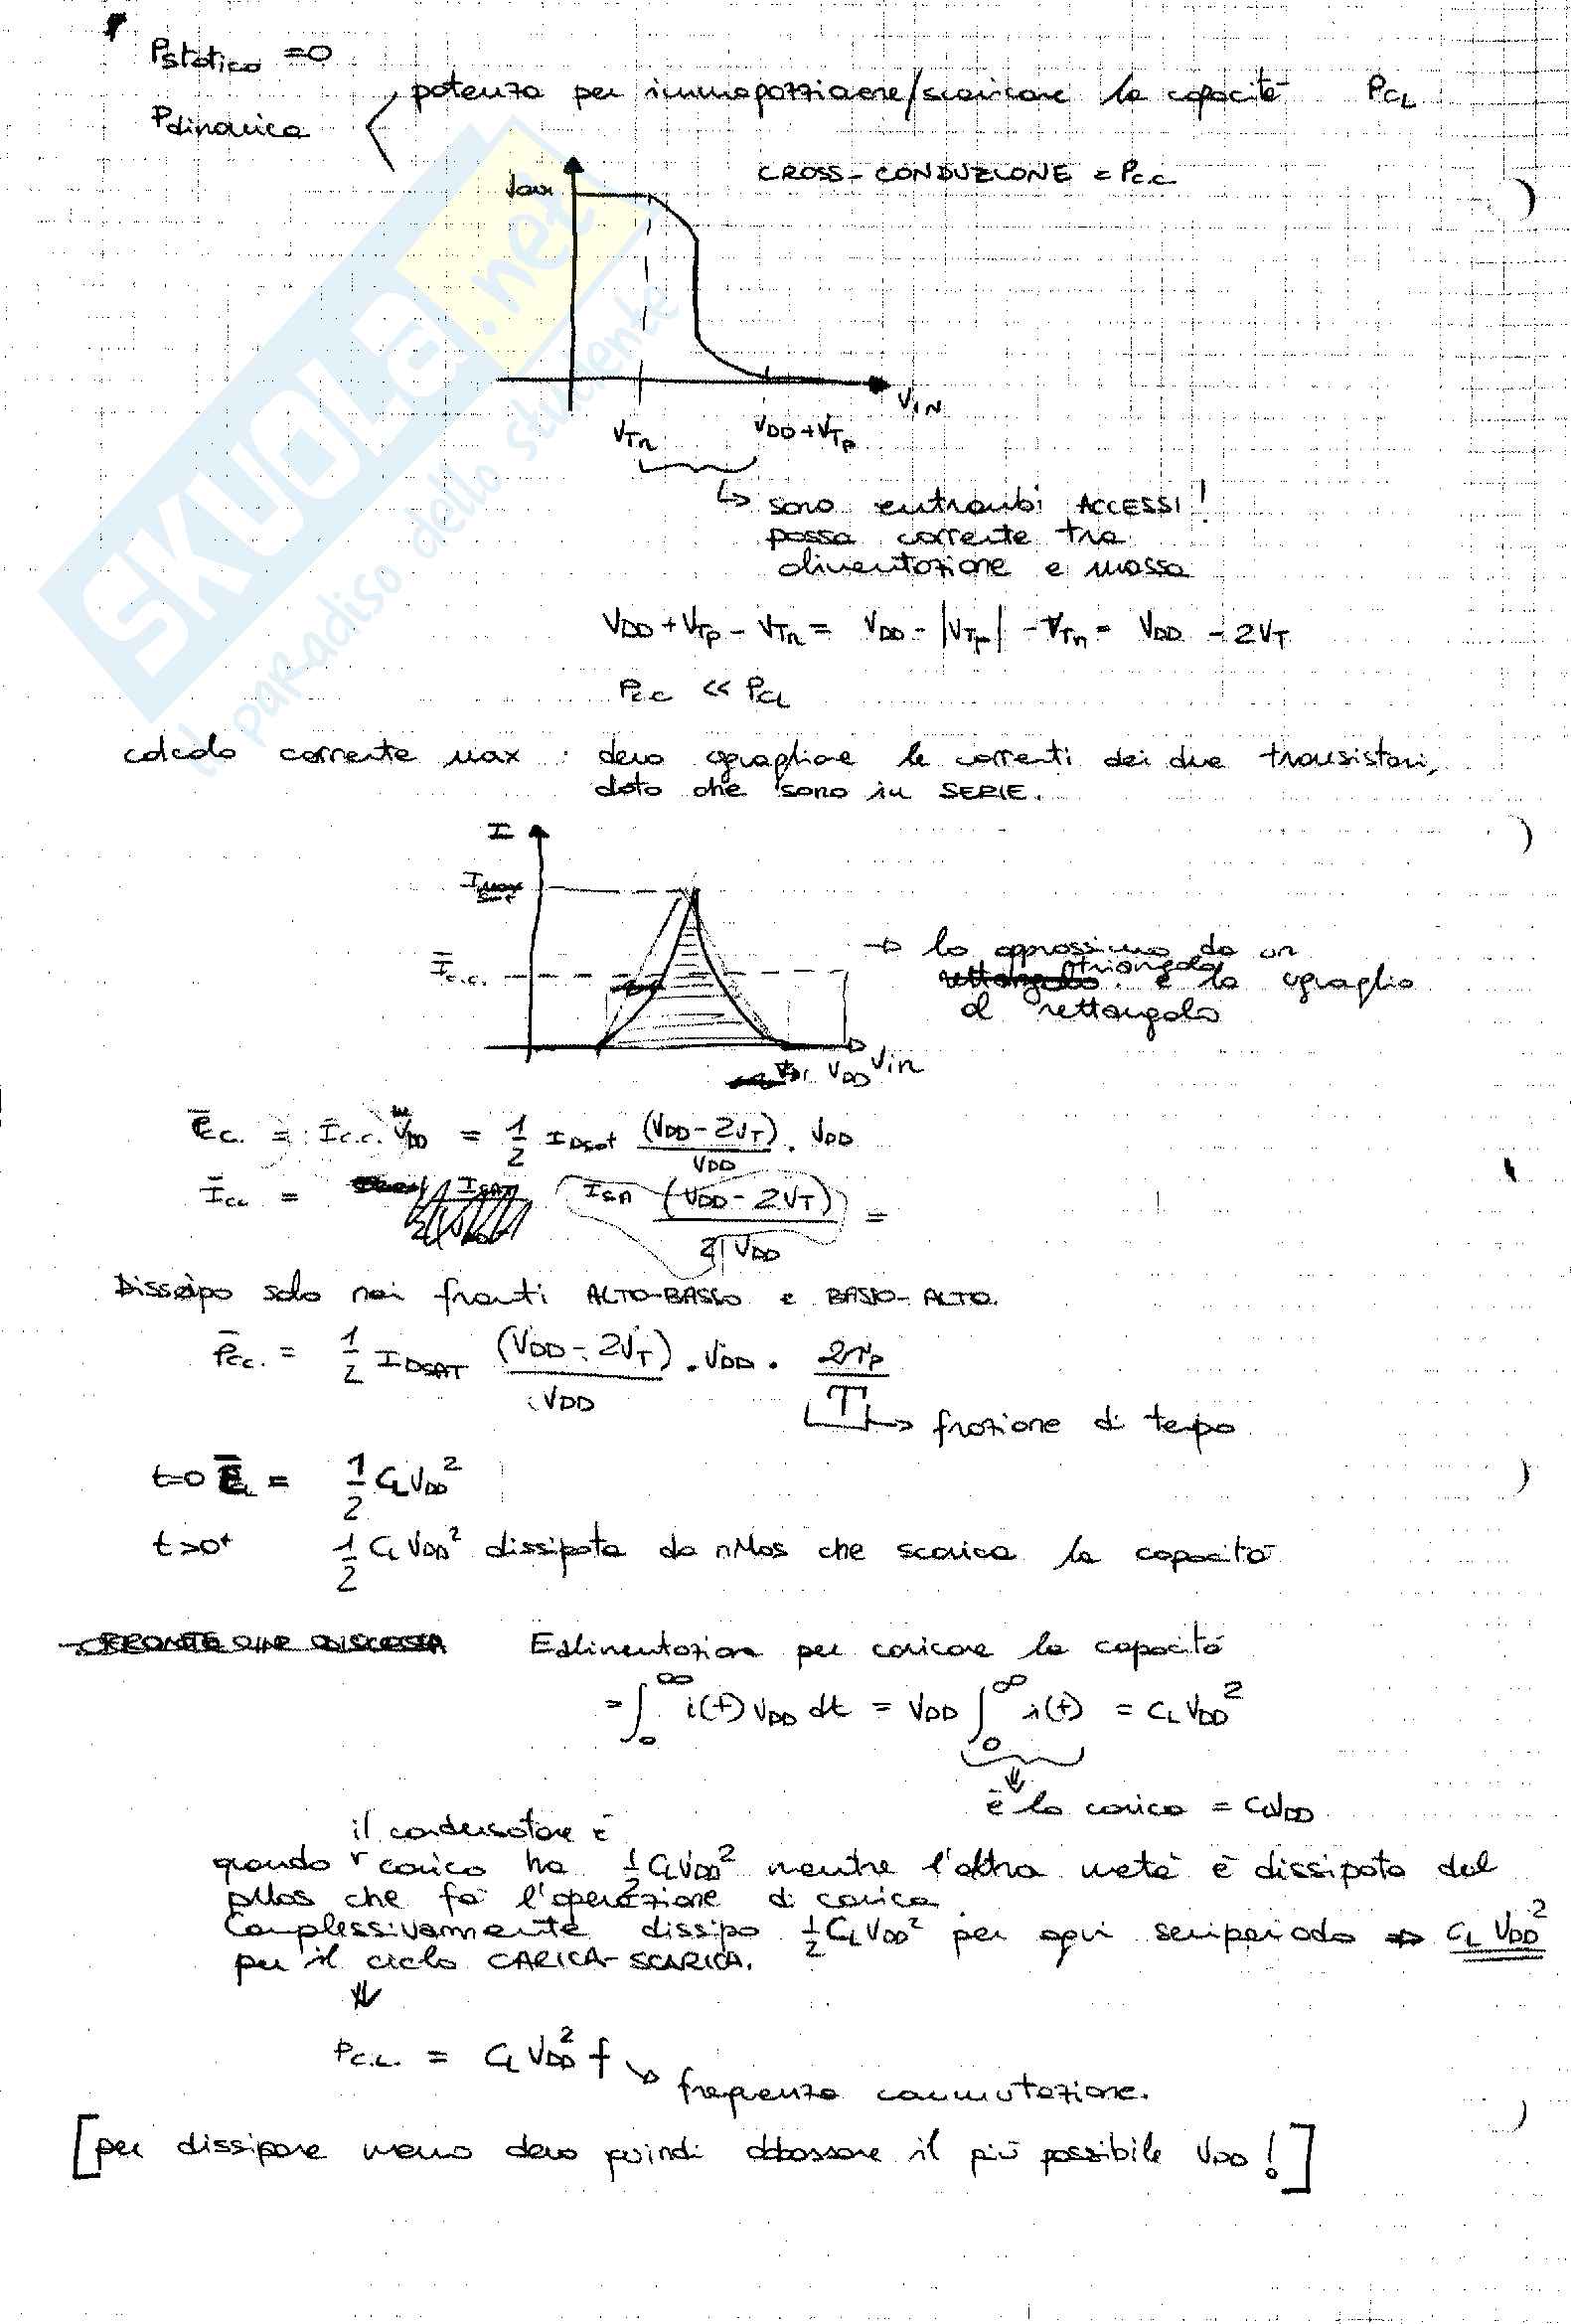 Pstatica = 0
Pdinamica
potenza per immagazzinare/scaricare la capacità PCL
CROSS-CONDUZIONE = Pc.c
Vout
VIN
VTn
VDD+VTp
↳ sono entrambi ACCESSI!
passa corrente tra
alimentazione e massa
VDD + VTp - VTn = VDD - |VTp| - VTn = VDD - 2VT
Pc.c << PCL
calcolo corrente max : devo uguagliare le correnti dei due transistori,
dato che sono in SERIE.
I
Imax
Īc.c.
→ lo approssimo da un
triangolo e lo uguaglio
al rettangolo
VDD Vin
= Īc.c. VDD = 1/2 IDsat (VDD - 2VT)/VDD · VDD
(VDD - 2VT)/2VDD =
Dissipo solo nei fronti ALTO-BASSO e BASSO-ALTO.
P̄cc. = 1/2 IDSAT (VDD - 2VT)/VDD · VDD · 2τp/T
→ frazione di tempo
t=0 = 1/2 CLVDD²
t>0⁺ 1/2 CL VDD² dissipata da nMos che scarica la capacità
Ealimentazione per caricare la capacità
= ∫₀^∞ i(t) VDD dt = VDD ∫₀^∞ i(t) = CL VDD²
è la carica = CLVDD
il condensatore è
quando carico ha 1/2 CLVDD² mentre l'altra metà è dissipata dal
pMos che fa l'operazione di carica
Complessivamente dissipo 1/2 CLVDD² per ogni semiperiodo ⇒ CL VDD²
per il ciclo CARICA-SCARICA.
Pc.L. = CL VDD² f
frequenza commutazione.
[per dissipare meno devo quindi abbassare il più possibile VDD!]
SKUOLA.net
il paradiso dello studente